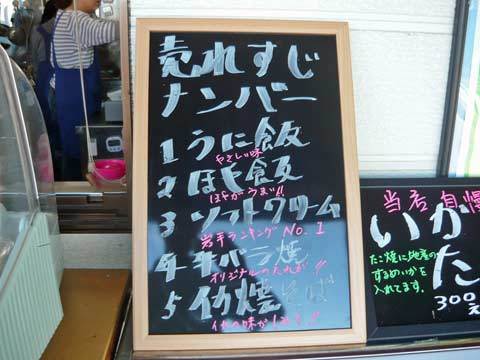 売れすじ
ナンバー
1 うに飯
やさしい味
2 ほや飯
ほやがうまい!!
3 ソフトクリーム
岩手ランキングNo.1
4 牛バラ焼
オリジナルのたれが!!
5 イカ焼そば
当店自慢
いか
た
たこ焼に地産の
するめいかを
入れてます。
300